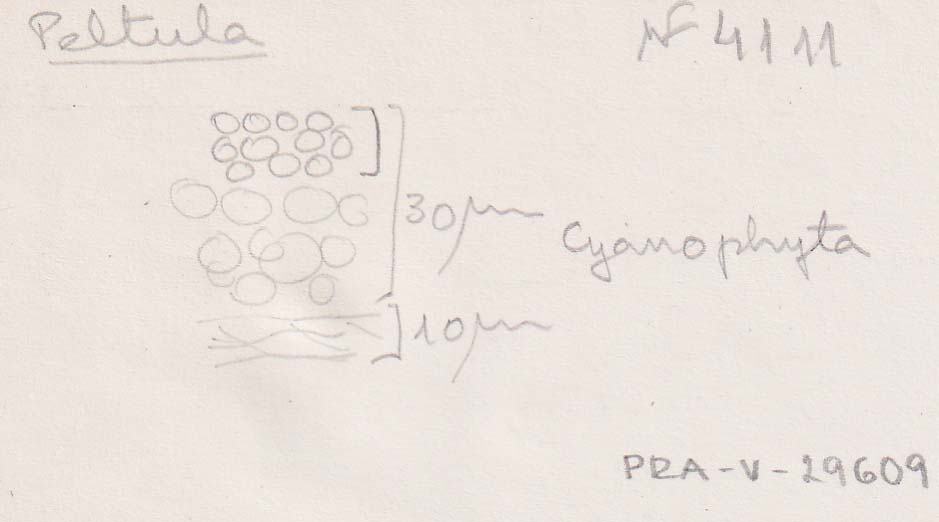 Peltula
N° 4111
30 µm
Cyanophyta
10 µm
PRA-V-29609